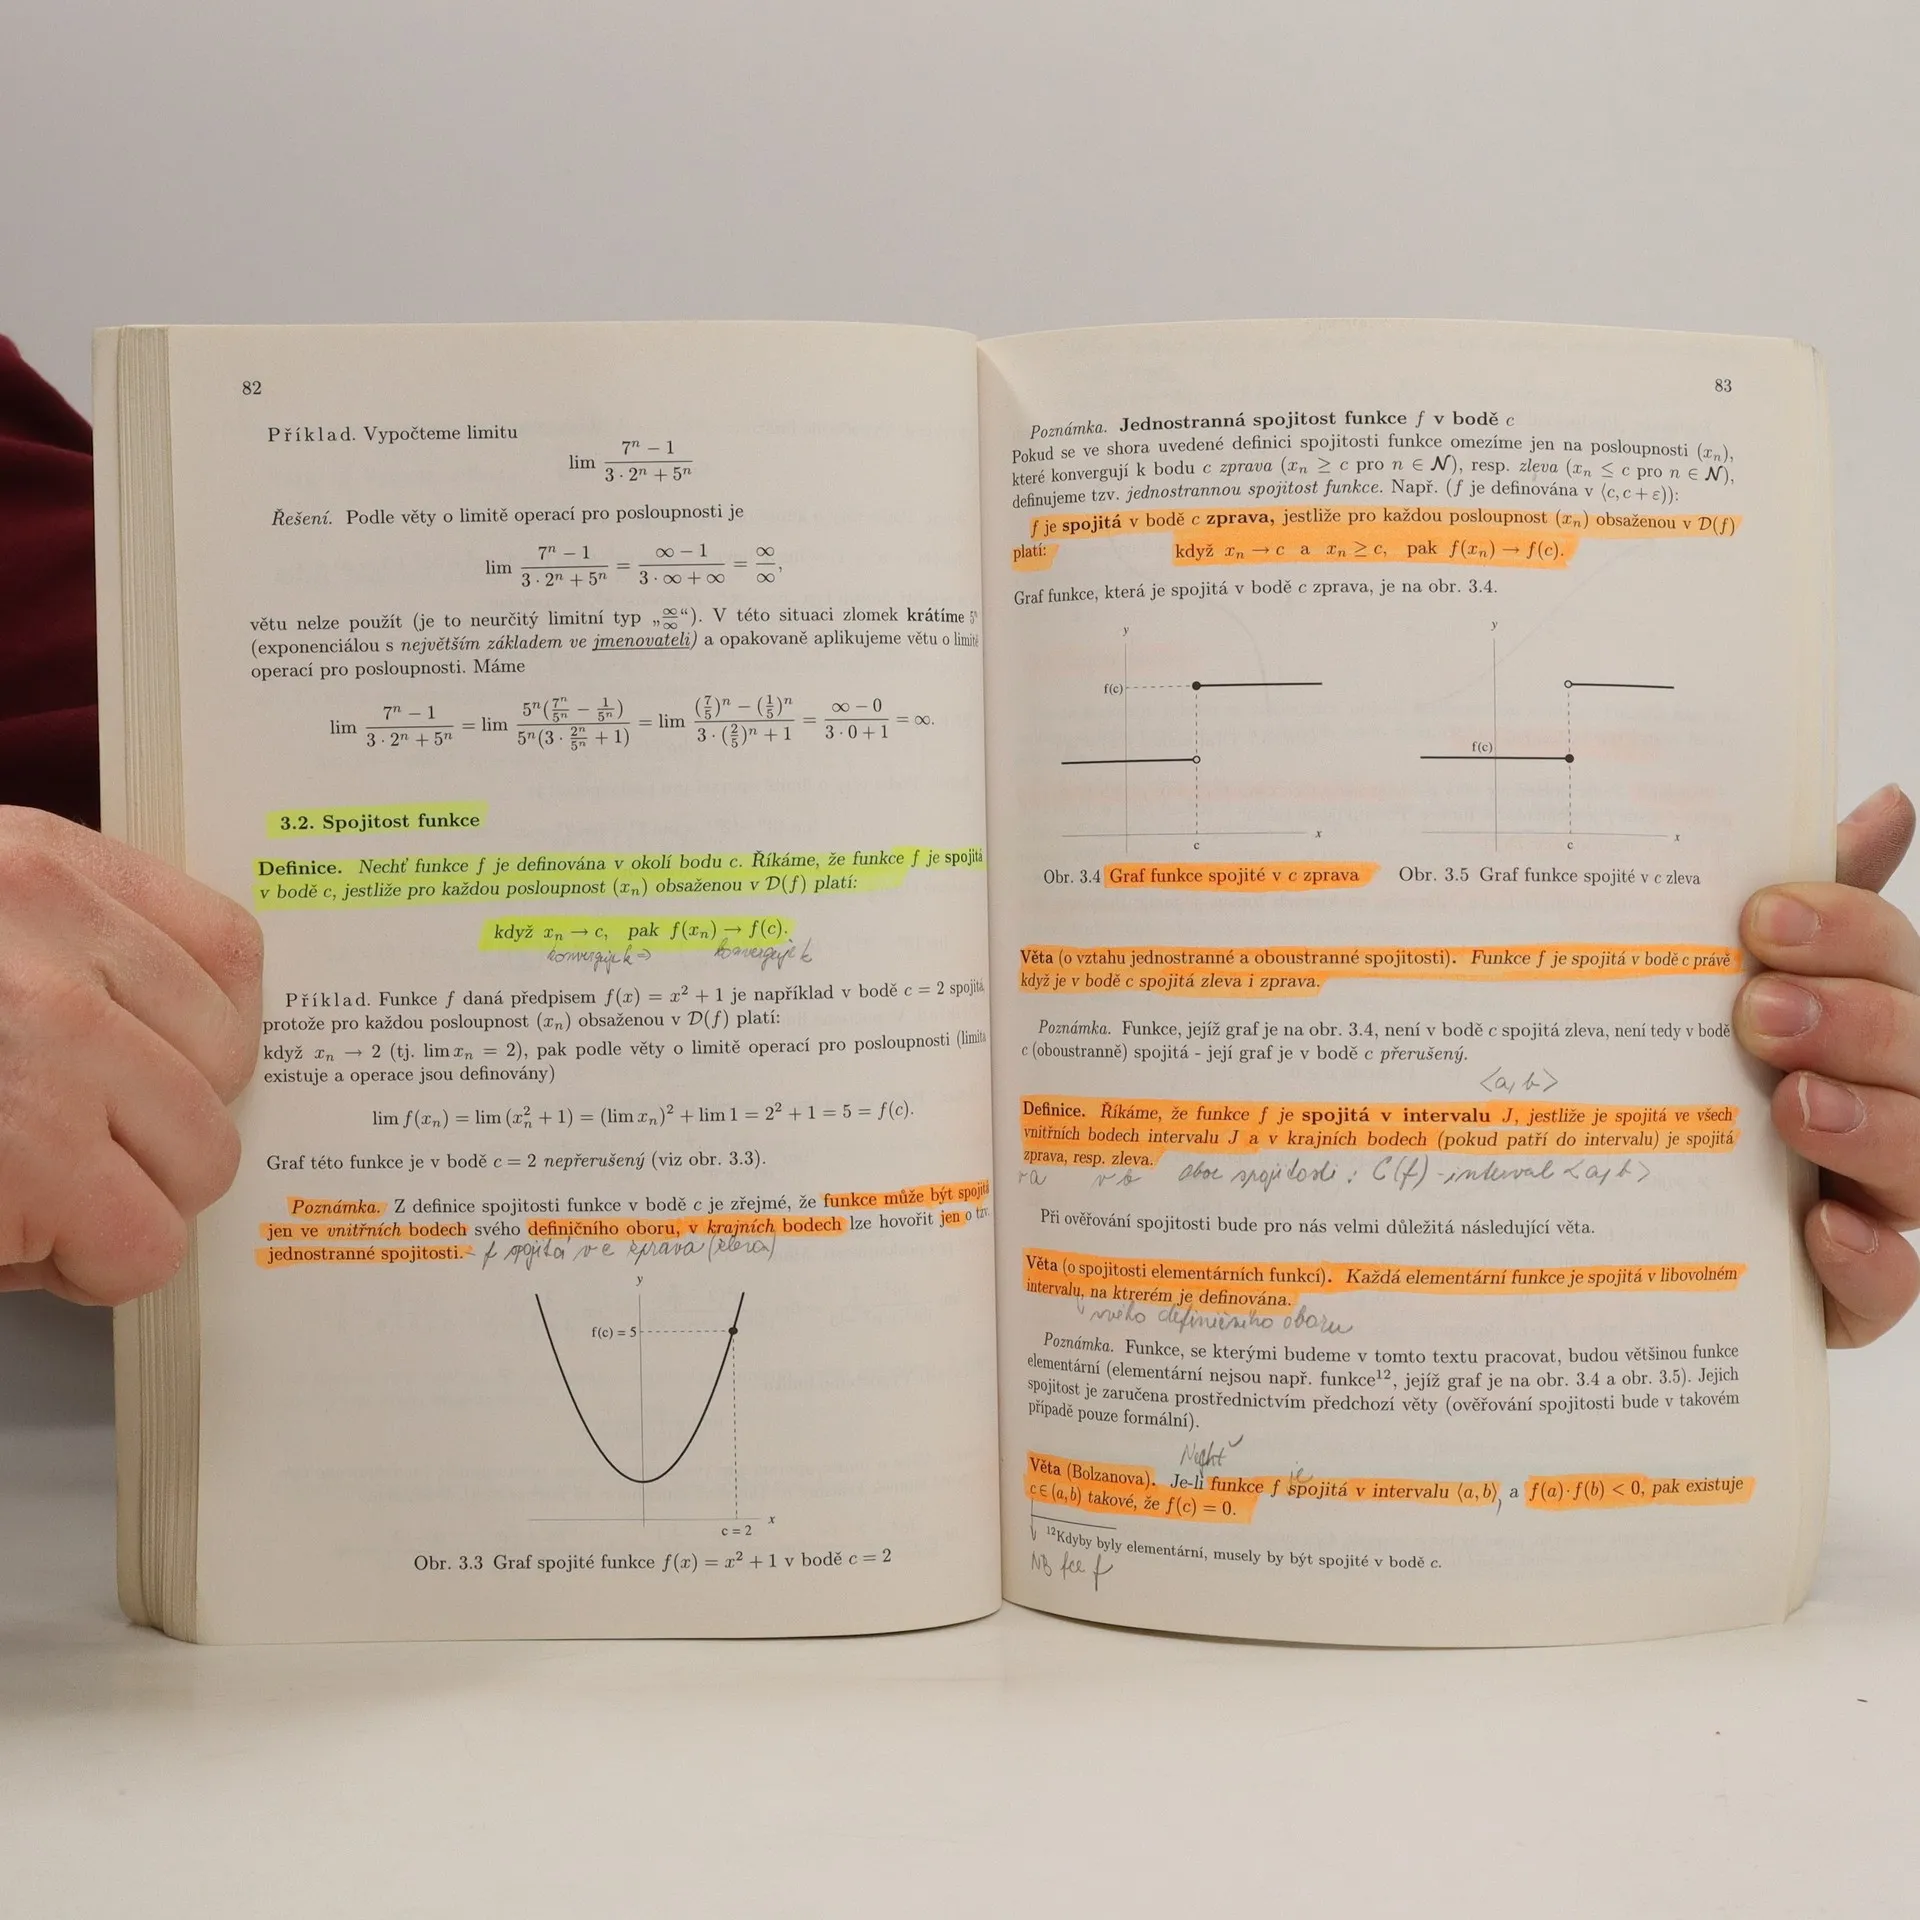 82
Příklad. Vypočteme limitu
lim (7ⁿ − 1)/(3 · 2ⁿ + 5ⁿ)
Řešení. Podle věty o limitě operací pro posloupnosti je
lim (7ⁿ − 1)/(3 · 2ⁿ + 5ⁿ) = (∞ − 1)/(3 · ∞ + ∞) = ∞/∞,
větu nelze použít (je to neurčitý limitní typ „∞/∞“). V této situaci zlomek krátíme 5ⁿ
(exponenciálou s největším základem ve jmenovateli) a opakovaně aplikujeme větu o limitě
operací pro posloupnosti. Máme
lim (7ⁿ − 1)/(3 · 2ⁿ + 5ⁿ) = lim 5ⁿ(7ⁿ/5ⁿ − 1/5ⁿ)/5ⁿ(3 · 2ⁿ/5ⁿ + 1) = lim ((7/5)ⁿ − (1/5)ⁿ)/(3 · (2/5)ⁿ + 1) = (∞ − 0)/(3 · 0 + 1) = ∞.
3.2. Spojitost funkce
Definice. Nechť funkce f je definována v okolí bodu c. Říkáme, že funkce f je spojitá
v bodě c, jestliže pro každou posloupnost (xₙ) obsaženou v D(f) platí:
když xₙ → c, pak f(xₙ) → f(c).
konverguje k ⇒ konverguje k
Příklad. Funkce f daná předpisem f(x) = x² + 1 je například v bodě c = 2 spojitá,
protože pro každou posloupnost (xₙ) obsaženou v D(f) platí:
když xₙ → 2 (tj. lim xₙ = 2), pak podle věty o limitě operací pro posloupnosti (limita
existuje a operace jsou definovány)
lim f(xₙ) = lim (xₙ² + 1) = (lim xₙ)² + lim 1 = 2² + 1 = 5 = f(c).
Graf této funkce je v bodě c = 2 nepřerušený (viz obr. 3.3).
Poznámka. Z definice spojitosti funkce v bodě c je zřejmé, že funkce může být spojitá
jen ve vnitřních bodech svého definičního oboru, v krajních bodech lze hovořit jen o tzv.
jednostranné spojitosti. - f spojitá v c zprava (zleva)
y
f(c) = 5
c = 2 x
Obr. 3.3 Graf spojité funkce f(x) = x² + 1 v bodě c = 2
83
Poznámka. Jednostranná spojitost funkce f v bodě c
Pokud se ve shora uvedené definici spojitosti funkce omezíme jen na posloupnosti (xₙ),
které konvergují k bodu c zprava (xₙ ≥ c pro n ∈ N), resp. zleva (xₙ ≤ c pro n ∈ N),
definujeme tzv. jednostrannou spojitost funkce. Např. (f je definována v ⟨c, c + ε)):
f je spojitá v bodě c zprava, jestliže pro každou posloupnost (xₙ) obsaženou v D(f)
platí: když xₙ → c a xₙ ≥ c, pak f(xₙ) → f(c).
Graf funkce, která je spojitá v bodě c zprava, je na obr. 3.4.
y y
f(c)
f(c)
x x
c c
Obr. 3.4 Graf funkce spojité v c zprava Obr. 3.5 Graf funkce spojité v c zleva
Věta (o vztahu jednostranné a oboustranné spojitosti). Funkce f je spojitá v bodě c právě
když je v bodě c spojitá zleva i zprava.
Poznámka. Funkce, jejíž graf je na obr. 3.4, není v bodě c spojitá zleva, není tedy v bodě
c (oboustranně) spojitá - její graf je v bodě c přerušený.
<a, b>
Definice. Říkáme, že funkce f je spojitá v intervalu J, jestliže je spojitá ve všech
vnitřních bodech intervalu J a v krajních bodech (pokud patří do intervalu) je spojitá
zprava, resp. zleva.
v a v b obor spojitosti : C(f) - interval <a, b>
Při ověřování spojitosti bude pro nás velmi důležitá následující věta.
Věta (o spojitosti elementárních funkcí). Každá elementární funkce je spojitá v libovolném
intervalu, na ktrerém je definována.
svého definičního oboru
Poznámka. Funkce, se kterými budeme v tomto textu pracovat, budou většinou funkce
elementární (elementární nejsou např. funkce¹², jejíž graf je na obr. 3.4 a obr. 3.5). Jejich
spojitost je zaručena prostřednictvím předchozí věty (ověřování spojitosti bude v takovém
případě pouze formální).
Nechť je
Věta (Bolzanova). Je-li funkce f spojitá v intervalu ⟨a, b⟩, a f(a) · f(b) < 0, pak existuje
c ∈ (a, b) takové, že f(c) = 0.
¹²Kdyby byly elementární, musely by být spojité v bodě c.
NB fce f